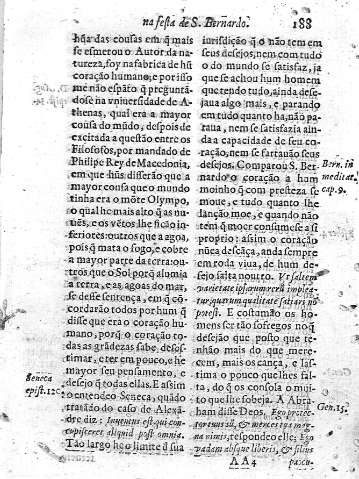 na festa de S. Bernardo. 188
hũa das cousas em q̃ mais
se esmerou o Autor da na
tureza, foy na fabrica de hũ
coração humano; e por isso
me não espãto q̃ preguntã
dose na vniuersidade de A-
thenas, qual era a mayor
cousa do mũdo, despois de
excitada a questão entre os
Filosofos, por mandado de
Philipe Rey de Macedonia,
em que hũs disserão que a
mayor cousa que o mundo
tinha era o mõte Olympo,
o qual he mais alto q̃ as nu-
uẽs, e os vẽtos lhe ficão in-
feriores: outros que a agoa,
pois q̃ mata o fogo, e cobre
a mayor parte da terra: ou-
tros que o Sol porq̃ alumia
a terra, e as agoas do mar,
se desse sentença, em q̃ cõ-
cordarão todos por hum q̃
disse que era o coração hu-
mano, porq̃ o coração to-
das as grãdezas sabe desos-
timar, e ter em pouco, e he
mayor seu pensamento, e
desejo q̃ todas ellas. E assim
o entendeo Seneca, quãdo
tratãdo do caso de Alexã-
dre diz: Inuentus est qui con-
cupisceret aliquid post omnia.
Tão largo he o limite d sua
Seneca
epist. 120.
jurisdição q̃ o não tem em
seus desejos, nem com tudo
o do mundo se satisfaz, ja
que se achou hum homem
que tendo tudo, ainda dese-
jaua algo mais, e parando
em tudo quanto ha, não pa-
raua, nem se satisfazia ain-
da a capacidade de seu co-
ração, nem se fartauão seus
desejos. Comparou S. Ber-
nardo o coração a hum
moinho q̃ com presteza se
moue, e tudo quanto lhe
lanção moe, e quando não
tem q̃ moer consumese a si
proprio: assim o coração
nũca descãça, anda sempre
em roda viua, de hum de-
sejo salta noutro. Vt saltem
varietate ipsarum rerum implea-
tur, quarum qualitate satiari nō
potest. E costumão os ho-
mens ser tão sofregos no q̃
desejão que posto que te-
nhão mais do que mere-
cem, mais os cança, e las-
tima o pouco que lhes fal-
ta, do q̃ os consola o mui-
to que lhe sobeja. A Abra-
ham disse Deos, Ego protec-
tor tuus sū, & merces tua mag-
na nimis, respondeo elle; Ego
vadam absque liberis, & filius
Bern. in
meditat.
cap. 9.
Gen. 15.
A A 4